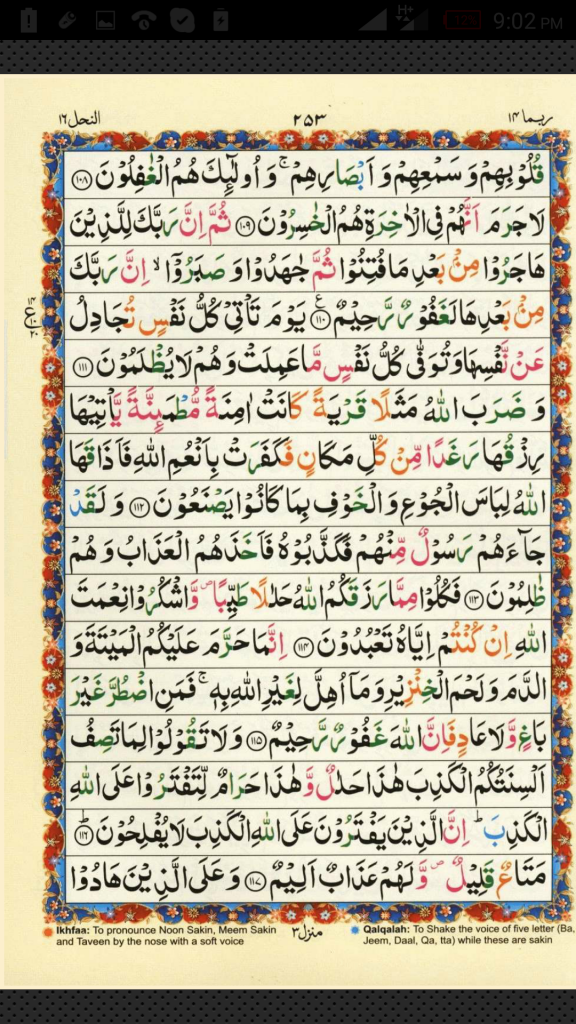 13%
9:02 PM
النحل ١٦
٢٥٣
ربما ١٤
قُلُوْبِهِمْ وَ سَمْعِهِمْ وَ اَبْصَارِهِمْ ۚ وَ اُولٰٓئِكَ هُمُ الْغٰفِلُوْنَ ﴿۱۰۸﴾
لَا جَرَمَ اَنَّهُمْ فِی الْاٰخِرَةِ هُمُ الْخٰسِرُوْنَ ﴿۱۰۹﴾ ثُمَّ اِنَّ رَبَّكَ لِلَّذِیْنَ
هَاجَرُوْا مِنْۢ بَعْدِ مَا فُتِنُوْا ثُمَّ جٰهَدُوْا وَ صَبَرُوْۤا ۙ اِنَّ رَبَّكَ
مِنْۢ بَعْدِهَا لَغَفُوْرٌ رَّحِیْمٌ ﴿۱۱۰﴾ یَوْمَ تَاْتِیْ كُلُّ نَفْسٍ تُجَادِلُ
عَنْ نَّفْسِهَا وَ تُوَفّٰی كُلُّ نَفْسٍ مَّا عَمِلَتْ وَ هُمْ لَا یُظْلَمُوْنَ ﴿۱۱۱﴾
وَ ضَرَبَ اللّٰهُ مَثَلًا قَرْیَةً كَانَتْ اٰمِنَةً مُّطْمَىِٕنَّةً یَّاْتِیْهَا
رِزْقُهَا رَغَدًا مِّنْ كُلِّ مَكَانٍ فَكَفَرَتْ بِاَنْعُمِ اللّٰهِ فَاَذَاقَهَا
اللّٰهُ لِبَاسَ الْجُوْعِ وَ الْخَوْفِ بِمَا كَانُوْا یَصْنَعُوْنَ ﴿۱۱۲﴾ وَ لَقَدْ
جَآءَهُمْ رَسُوْلٌ مِّنْهُمْ فَكَذَّبُوْهُ فَاَخَذَهُمُ الْعَذَابُ وَ هُمْ
ظٰلِمُوْنَ ﴿۱۱۳﴾ فَكُلُوْا مِمَّا رَزَقَكُمُ اللّٰهُ حَلٰلًا طَیِّبًا ۪ وَّ اشْكُرُوْا نِعْمَتَ
اللّٰهِ اِنْ كُنْتُمْ اِیَّاهُ تَعْبُدُوْنَ ﴿۱۱۴﴾ اِنَّمَا حَرَّمَ عَلَیْكُمُ الْمَیْتَةَ وَ
الدَّمَ وَ لَحْمَ الْخِنْزِیْرِ وَ مَاۤ اُهِلَّ لِغَیْرِ اللّٰهِ بِهٖ ۚ فَمَنِ اضْطُرَّ غَیْرَ
بَاغٍ وَّ لَا عَادٍ فَاِنَّ اللّٰهَ غَفُوْرٌ رَّحِیْمٌ ﴿۱۱۵﴾ وَ لَا تَقُوْلُوْا لِمَا تَصِفُ
اَلْسِنَتُكُمُ الْكَذِبَ هٰذَا حَلٰلٌ وَّ هٰذَا حَرَامٌ لِّتَفْتَرُوْا عَلَی اللّٰهِ
الْكَذِبَ ؕ اِنَّ الَّذِیْنَ یَفْتَرُوْنَ عَلَی اللّٰهِ الْكَذِبَ لَا یُفْلِحُوْنَ ﴿۱۱۶﴾ؕ
مَتَاعٌ قَلِیْلٌ ۪ وَّ لَهُمْ عَذَابٌ اَلِیْمٌ ﴿۱۱۷﴾ وَ عَلَی الَّذِیْنَ هَادُوْا
Ikhfaa: To pronounce Noon Sakin, Meem Sakin
and Taveen by the nose with a soft voice
منزل ٣
Qalqalah: To Shake the voice of five letter (Ba,
Jeem, Daal, Qa, tta) while these are sakin